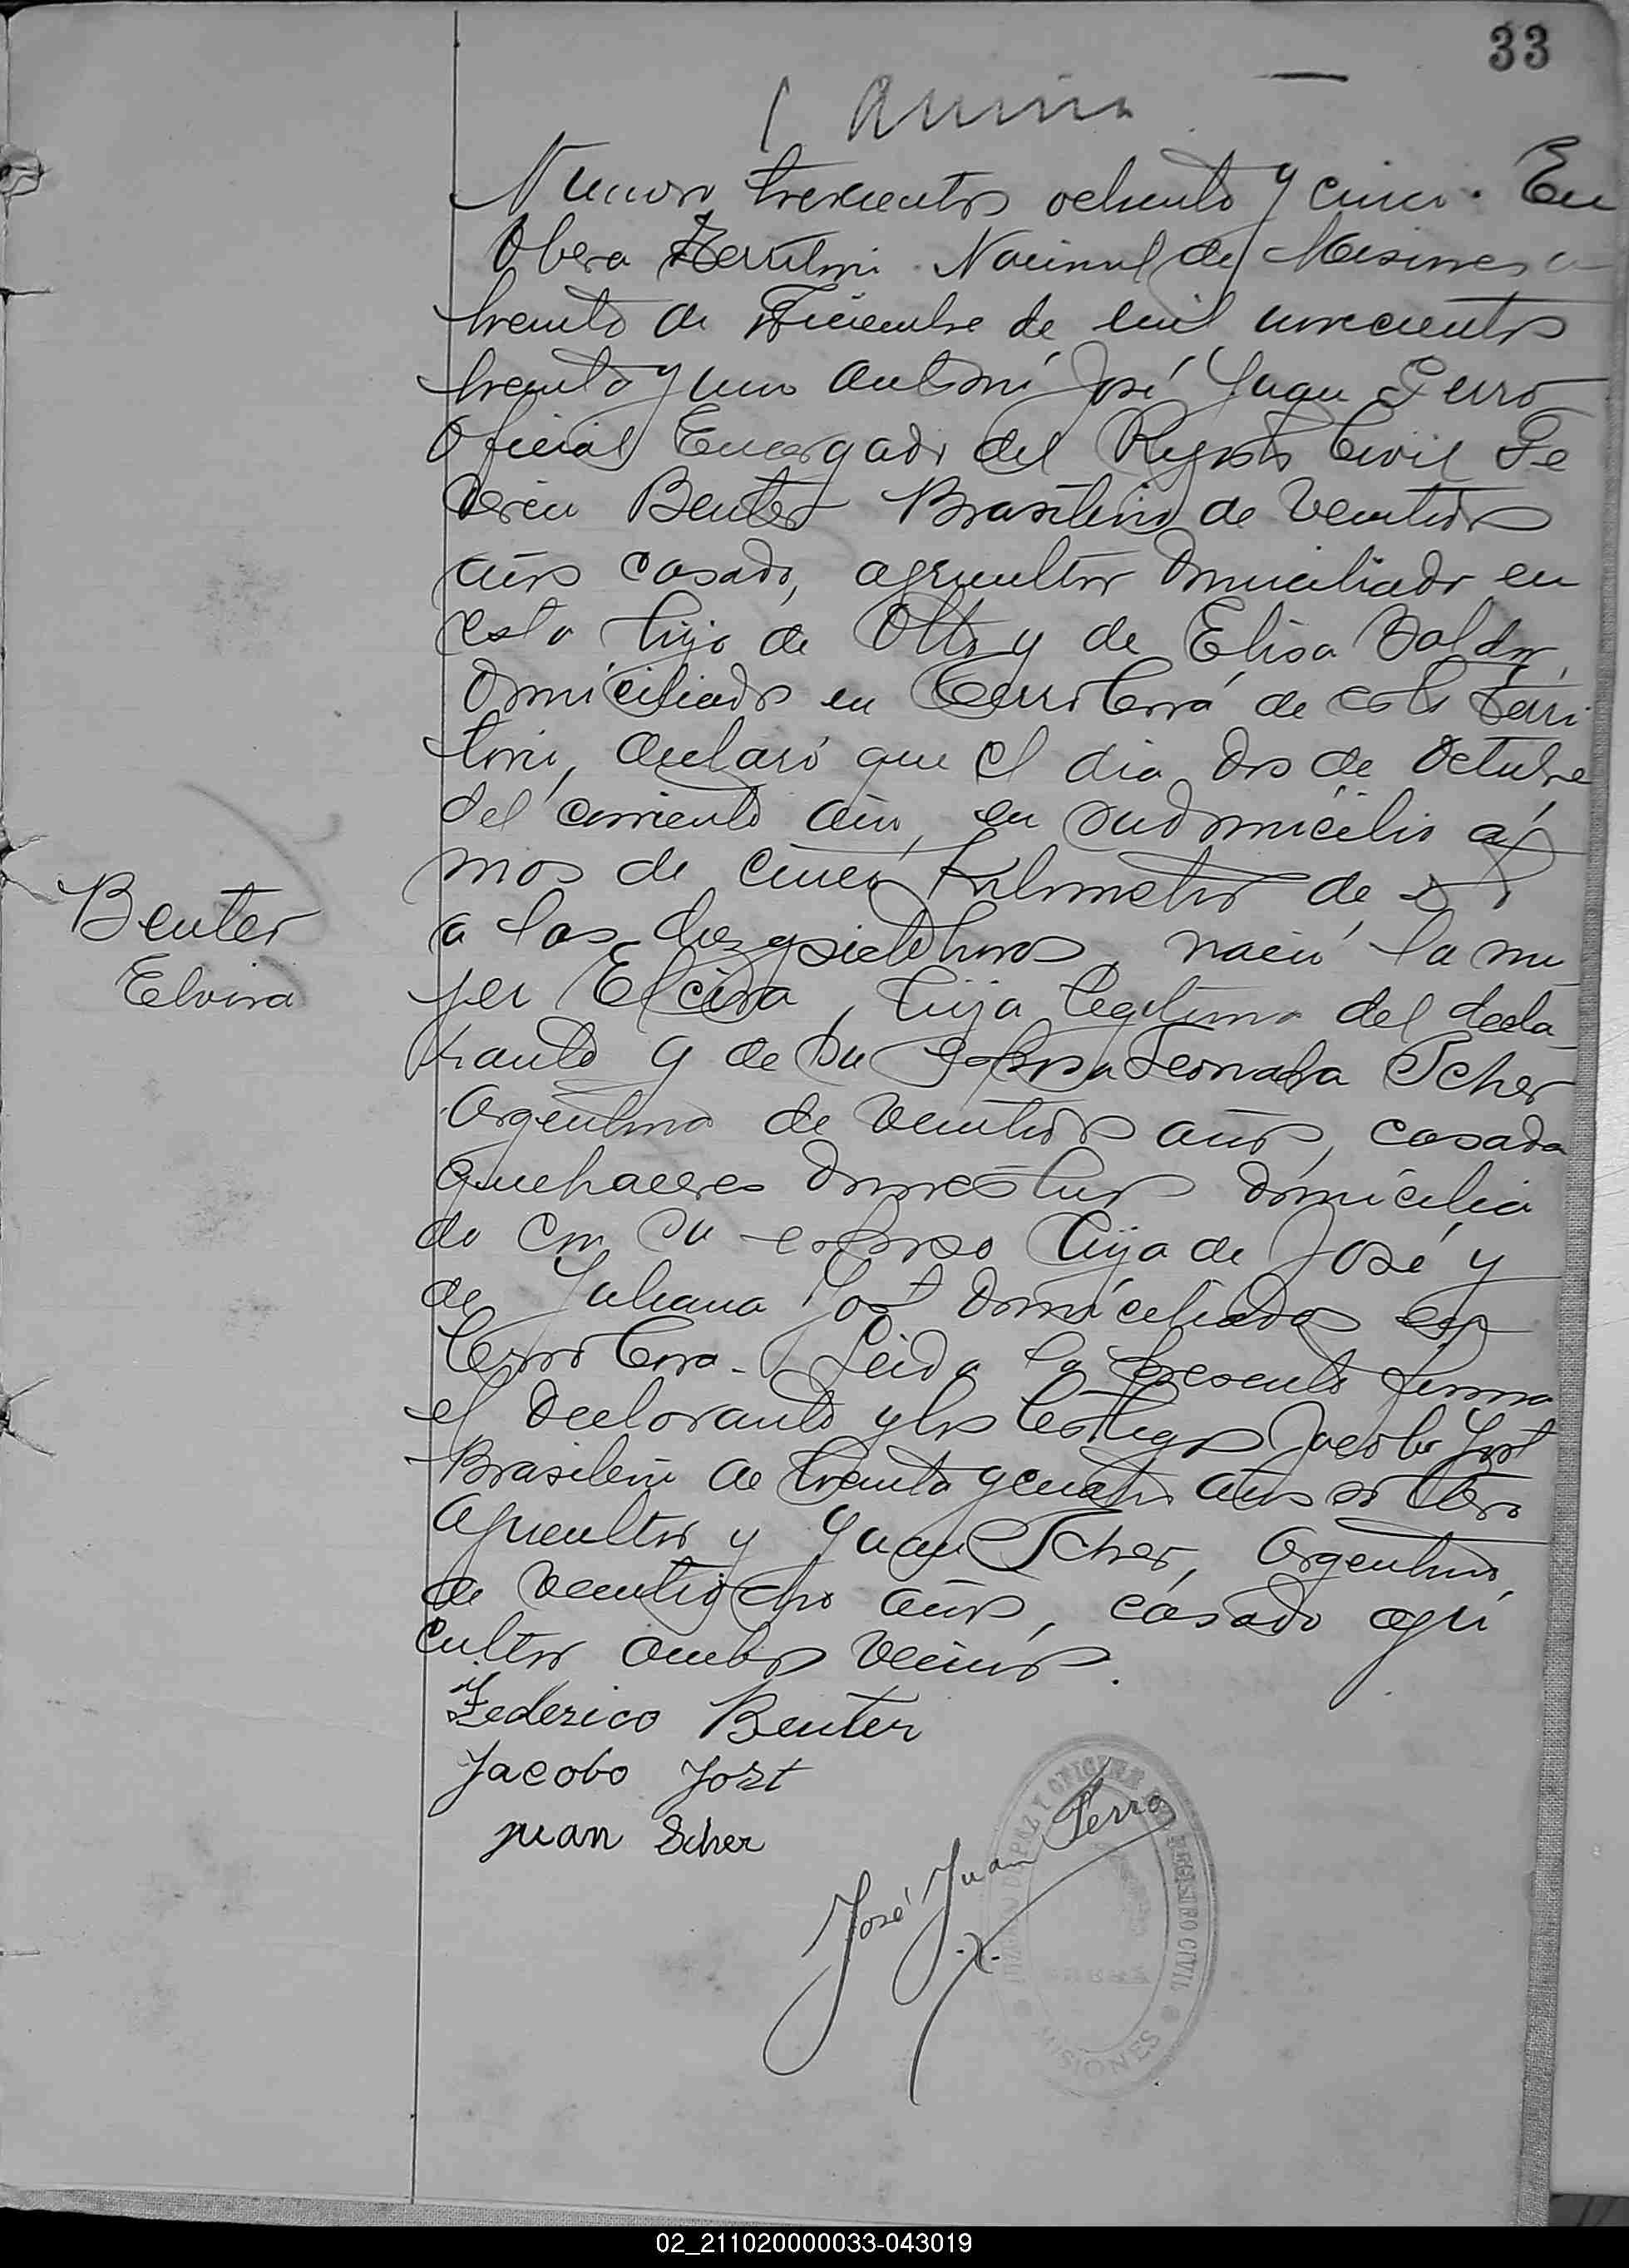 33
Numero trescientos ochenta y cinco. En
Obera Territorio Nacional de Misiones a
treinta de Diciembre de mil novecientos
treinta y uno ante mi José Juan Perro
Oficial Encargado del Registro Civil Fe
derico Benter Brasilero de veintidos
años casado, agricultor domiciliado en
esta hijo de Otto y de Elisa
domiciliados en Cerro Corá de este Terri
torio, declaró que el dia dos de Octubre
del corriente año, en su domicilio a
mas de cinco kilometros de
a las diez y siete horas, nació la mu
Benter
Elvira
jer Elvira, hija legitima del decla
rante y de su esposa Leonarda Scher
Argentina de veintidos años, casada
quehaceres domesticos domicilia
da con su esposo hija de José y
de Juliana Jost domiciliados en
Cerro Cora. Leida la presente firma
el declarante y los testigos Jacobo Jost
Brasilero de treinta y cuatro años soltero
agricultor y Juan Scher, Argentino,
de veintiocho años, casado agri
cultor ambos vecinos.
Federico Benter
Jacobo Jost
Juan Scher
José Juan Perro
JUZGADO DE PAZ Y OFICINA DEL REGISTRO CIVIL
MISIONES
02_211020000033-043019